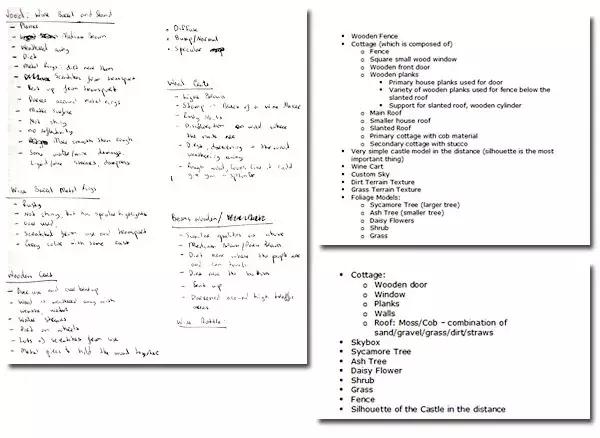 Wood: Wine Barrel and Stand
- Planes
- Medium Brown
- Weathered away
- Dirt
- Metal Rings: dirt near them
- Scratches from transport
- Bent up from transport
- Darker around metal rings
- Matte surface
- Not shiny
- no reflectivity
- More smooth than rough
- Some water/wine damage,
Wine Barrel Metal Rings
- Rusty
- Not shiny, but has specular highlights
- Over used
- Scratched from use and transport
- Grey color with some rust
Wooden Cart
- Over use and over beat up
- Wood is weathered away with
- Water streaks
- Dirt on wheels
- Lots of scratches from use
- Metal pieces to hold the wood together
• Diffuse
• Bump/Normal
• Specular
Wood Carts
- Light Brown
- Stamp - Brand of a Wine Maker
- Rusty Nails
- Discoloration on wood where
the nails are
- Dirty, darkening - the wood
weathering away
- Rough wood, looks like it could
give you a splinter
Beams wooden/
- Similar qualities as above
- Medium Brown/Dark Brown
- Dirt near where the people are
and can touch
- Dirt near the bottom
- Beat up
- Darkened around high traffic
areas
Wine Bottle:
• Wooden Fence
• Cottage (which is composed of)
o Fence
o Square small wood window
o Wooden front door
o Wooden planks
▪ Primary house planks used for door
▪ Variety of wooden planks used for fence below the
slanted roof
▪ Support for slanted roof, wooden cylinder
o Main Roof
o Smaller house roof
o Slanted Roof
o Primary cottage with cob material
o Secondary cottage with stucco
• Very simple castle model in the distance (silhouette is the most
important thing)
• Wine Cart
• Custom Sky
• Dirt Terrain Texture
• Grass Terrain Texture
• Foliage Models:
o Sycamore Tree (larger tree)
o Ash Tree (smaller tree)
o Daisy Flowers
o Shrub
o Grass
• Cottage:
o Wooden door
o Window
o Planks
o Walls
o Roof: Moss/Cob - combination of
sand/gravel/grass/dirt/straws
• Skybox
• Sycamore Tree
• Ash Tree
• Daisy Flower
• Shrub
• Grass
• Fence
• Silhouette of the Castle in the distance